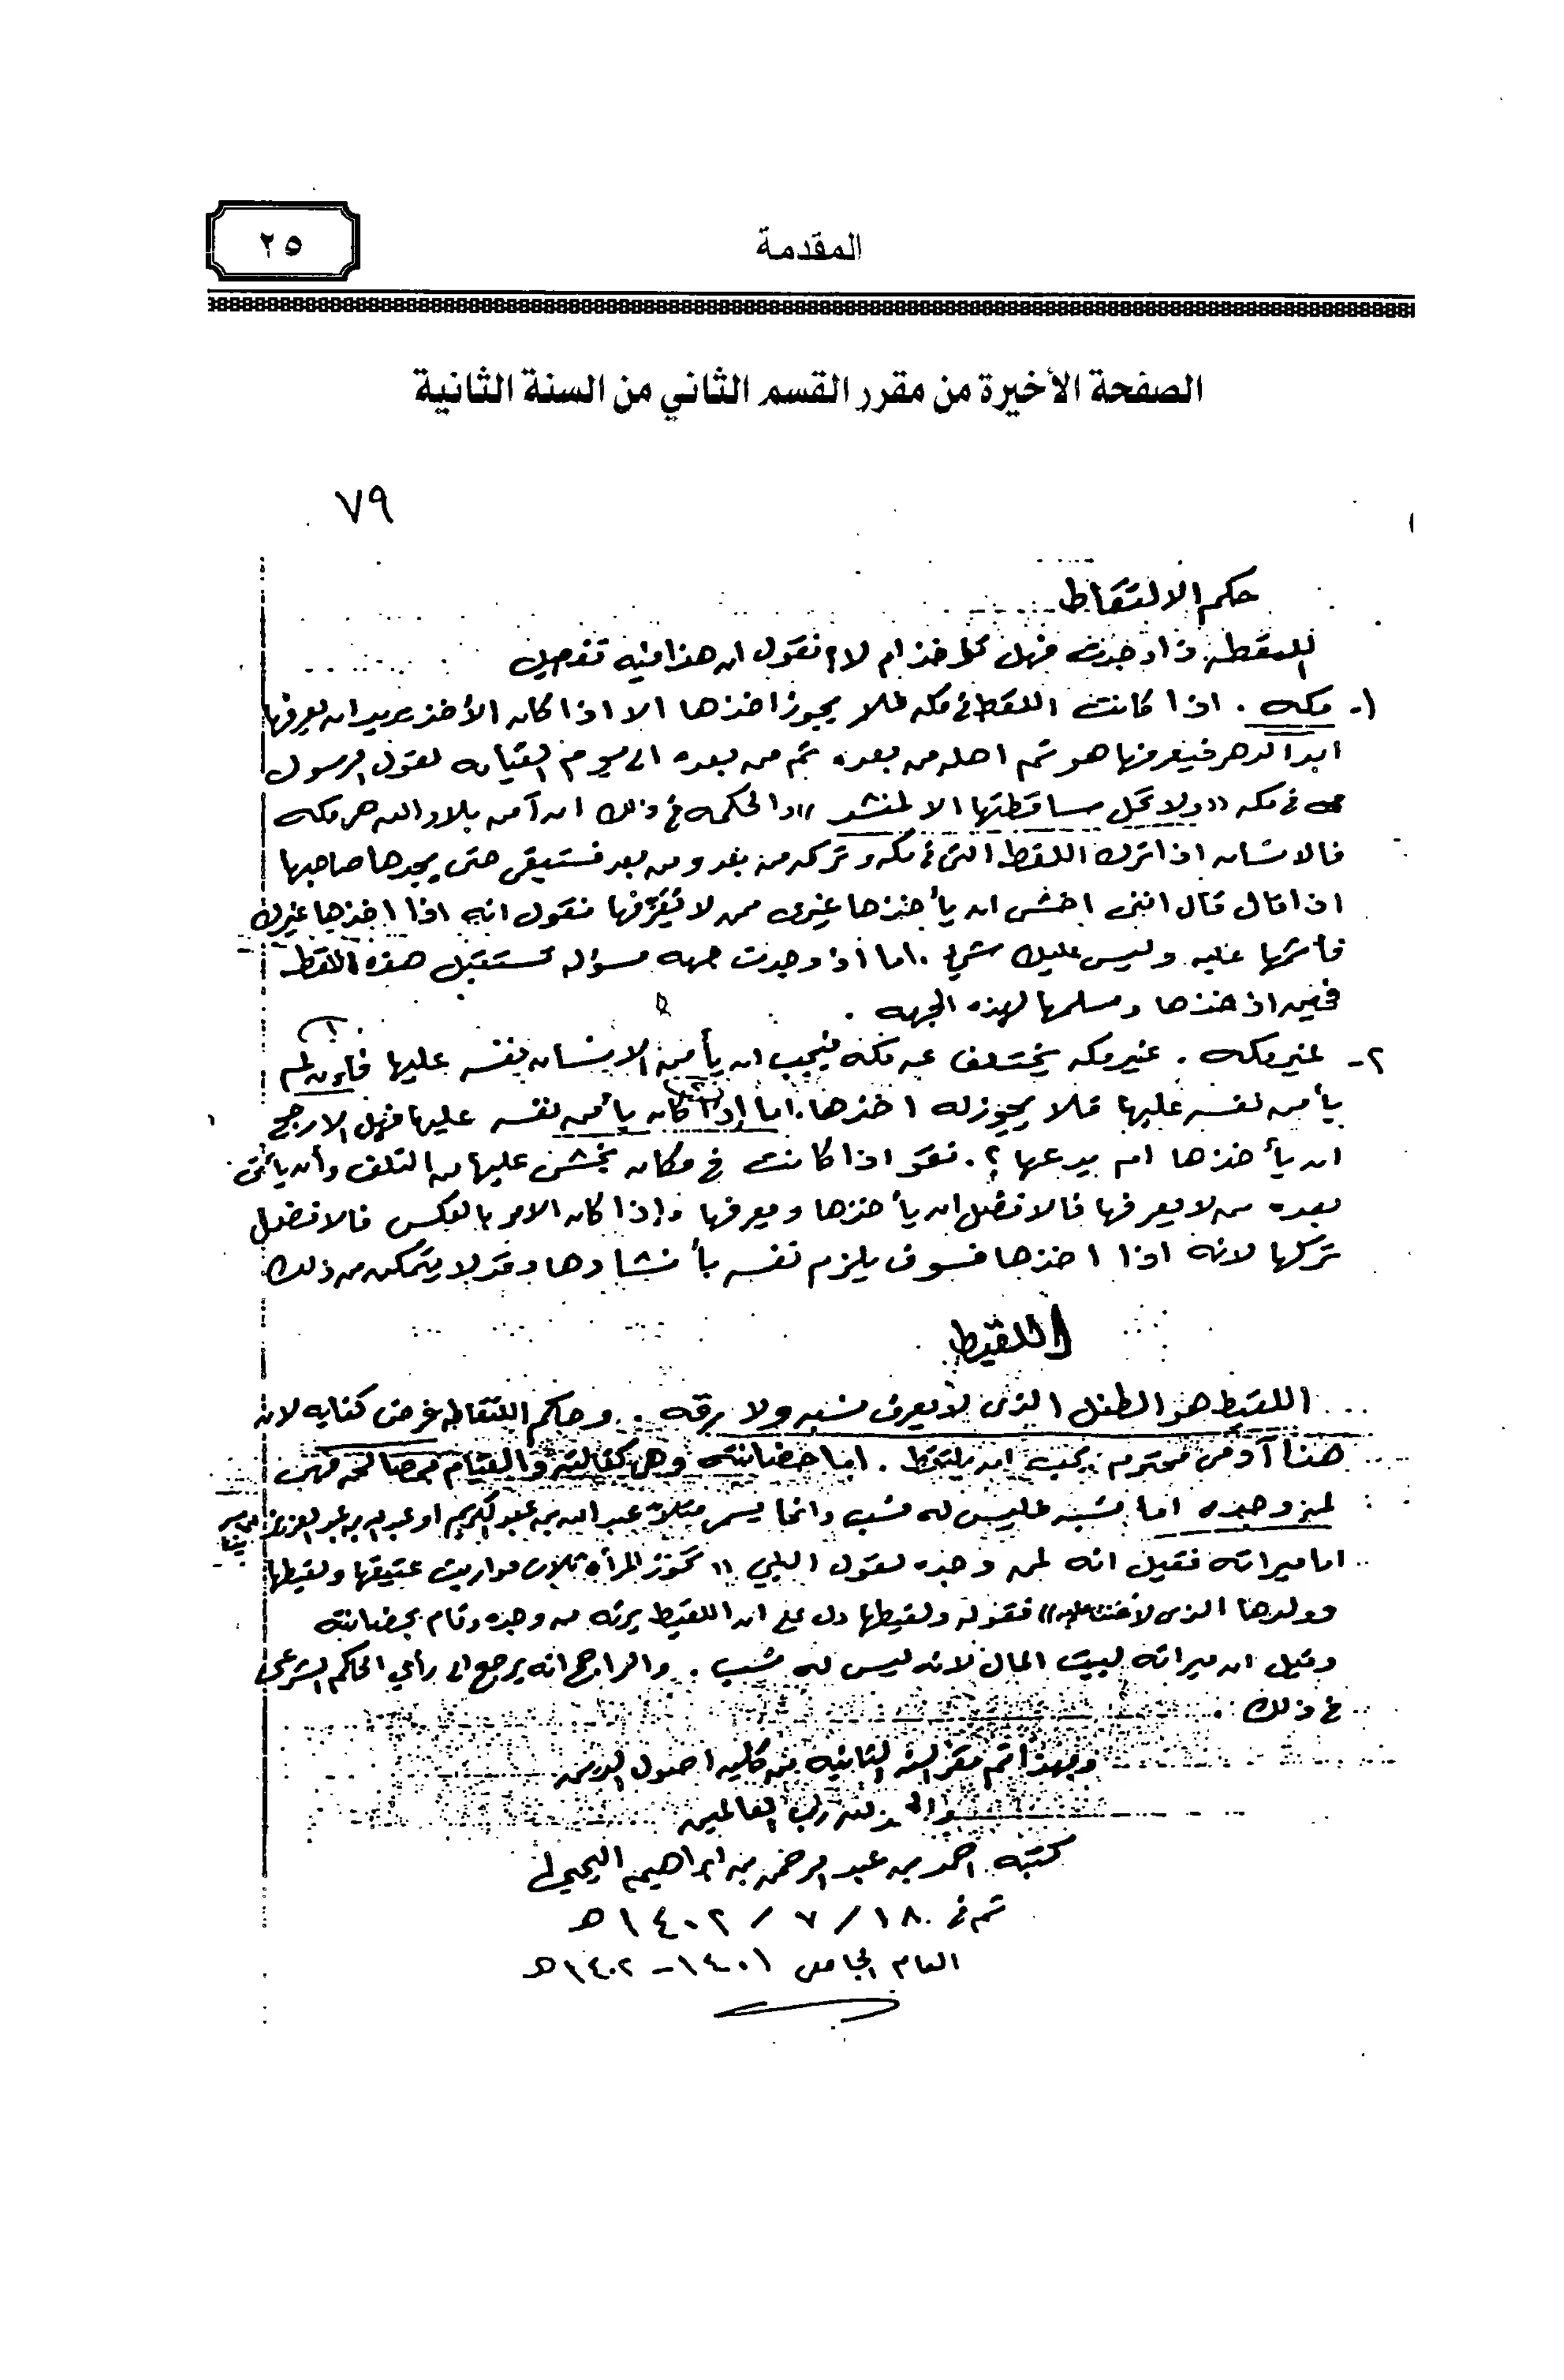 المقدمة
٢٥
الصفحة الأخيرة من مقرر القسم الثاني من السنة الثانية
٧٩
حكم الالتقاط
اللقطه اذا وجدت فهل تؤخذ ام لا؟ نقول ان هذا فيه تفصيل
١- مكه . اذا كانت اللقطه في مكه فلا يجوز اخذها الا اذا كان الأخذ يريد ان يعرفها
ابد الدهر فيعرفها هو ثم اهله من بعده ثم من بعده الى يوم القيامه لقول الرسول
ص في مكه ((ولا تحل ساقطتها الا لمنشد)) والحكمه في ذلك ان آمن بلاد الله هي مكه
فالانسان اذا ترك اللقطه التي في مكه وتركه من بعد ومن بعد فستبقى حتى يجدها صاحبها
اذا قال قال انني اخشى ان يأخذها غيري ممن لا يعرّفها نقول انه اذا اخذها غيرك
فاثمها عليه وليس عليك شيء . اما اذا وجدت جهه مسؤله تستقبل هذه اللقطه
فخذها وسلمها لهذه الجهه .
٢- غير مكه . غير مكه يختلف عن مكه فيجب ان يأمن الانسان نفسه عليها فإن لم
يأمن نفسه عليها فلا يجوز له اخذها. اما إذا كان يأمن نفسه عليها فهل الارجح
ان يأخذها ام يدعها ؟ . نقو اذا كانت في مكان يخشى عليها من التلف وأن يأتي
بعده من لا يعرفها فالافضل ان يأخذها ويعرفها وإذا كان الامر بالعكس فالافضل
تركها لانه اذا اخذها فسوف يلزم نفسه بأنشادها وقد لا يتمكن من ذلك
اللقيط
اللقيط هو الطفل الذي لا يعرف نسبه ولا رقه . وحكم التقاطه فرض كفايه لانه
هنا آدمي محترم يجب ان يلتقط . اما حضانته وهي كفالته والقيام بمصالحه فهي
لمن وجده اما نسبه فليس له نسب وانما يسمى مثلاً عبد الله بن عبد الكريم او عبد الله بن عبد العزيز
اما ميراثه فقيل انه لمن وجده لقول النبي (( تحوز المرأة ثلاث مواريث عتيقها ولقيطها
وولدها الذي لاعنت عليه)) فقوله ولقيطها دل على ان اللقيط يرثه من وجده وقام بحضانته
وقيل ان ميراثه لبيت المال لانه ليس له نسب . والراجح انه يرجع الى رأي الحاكم الشرعي
في ذلك .
وبهذا تم مقرر السنه الثانيه من كليه اصول الدين
والحمد لله رب العالمين
كتبه احمد بن عبد الرحمن بن ابراهيم اليحيى
تم في ١٨ / ٧ / ١٤٠٢ هـ
العام الجامعي ١٤٠١ - ١٤٠٢ هـ